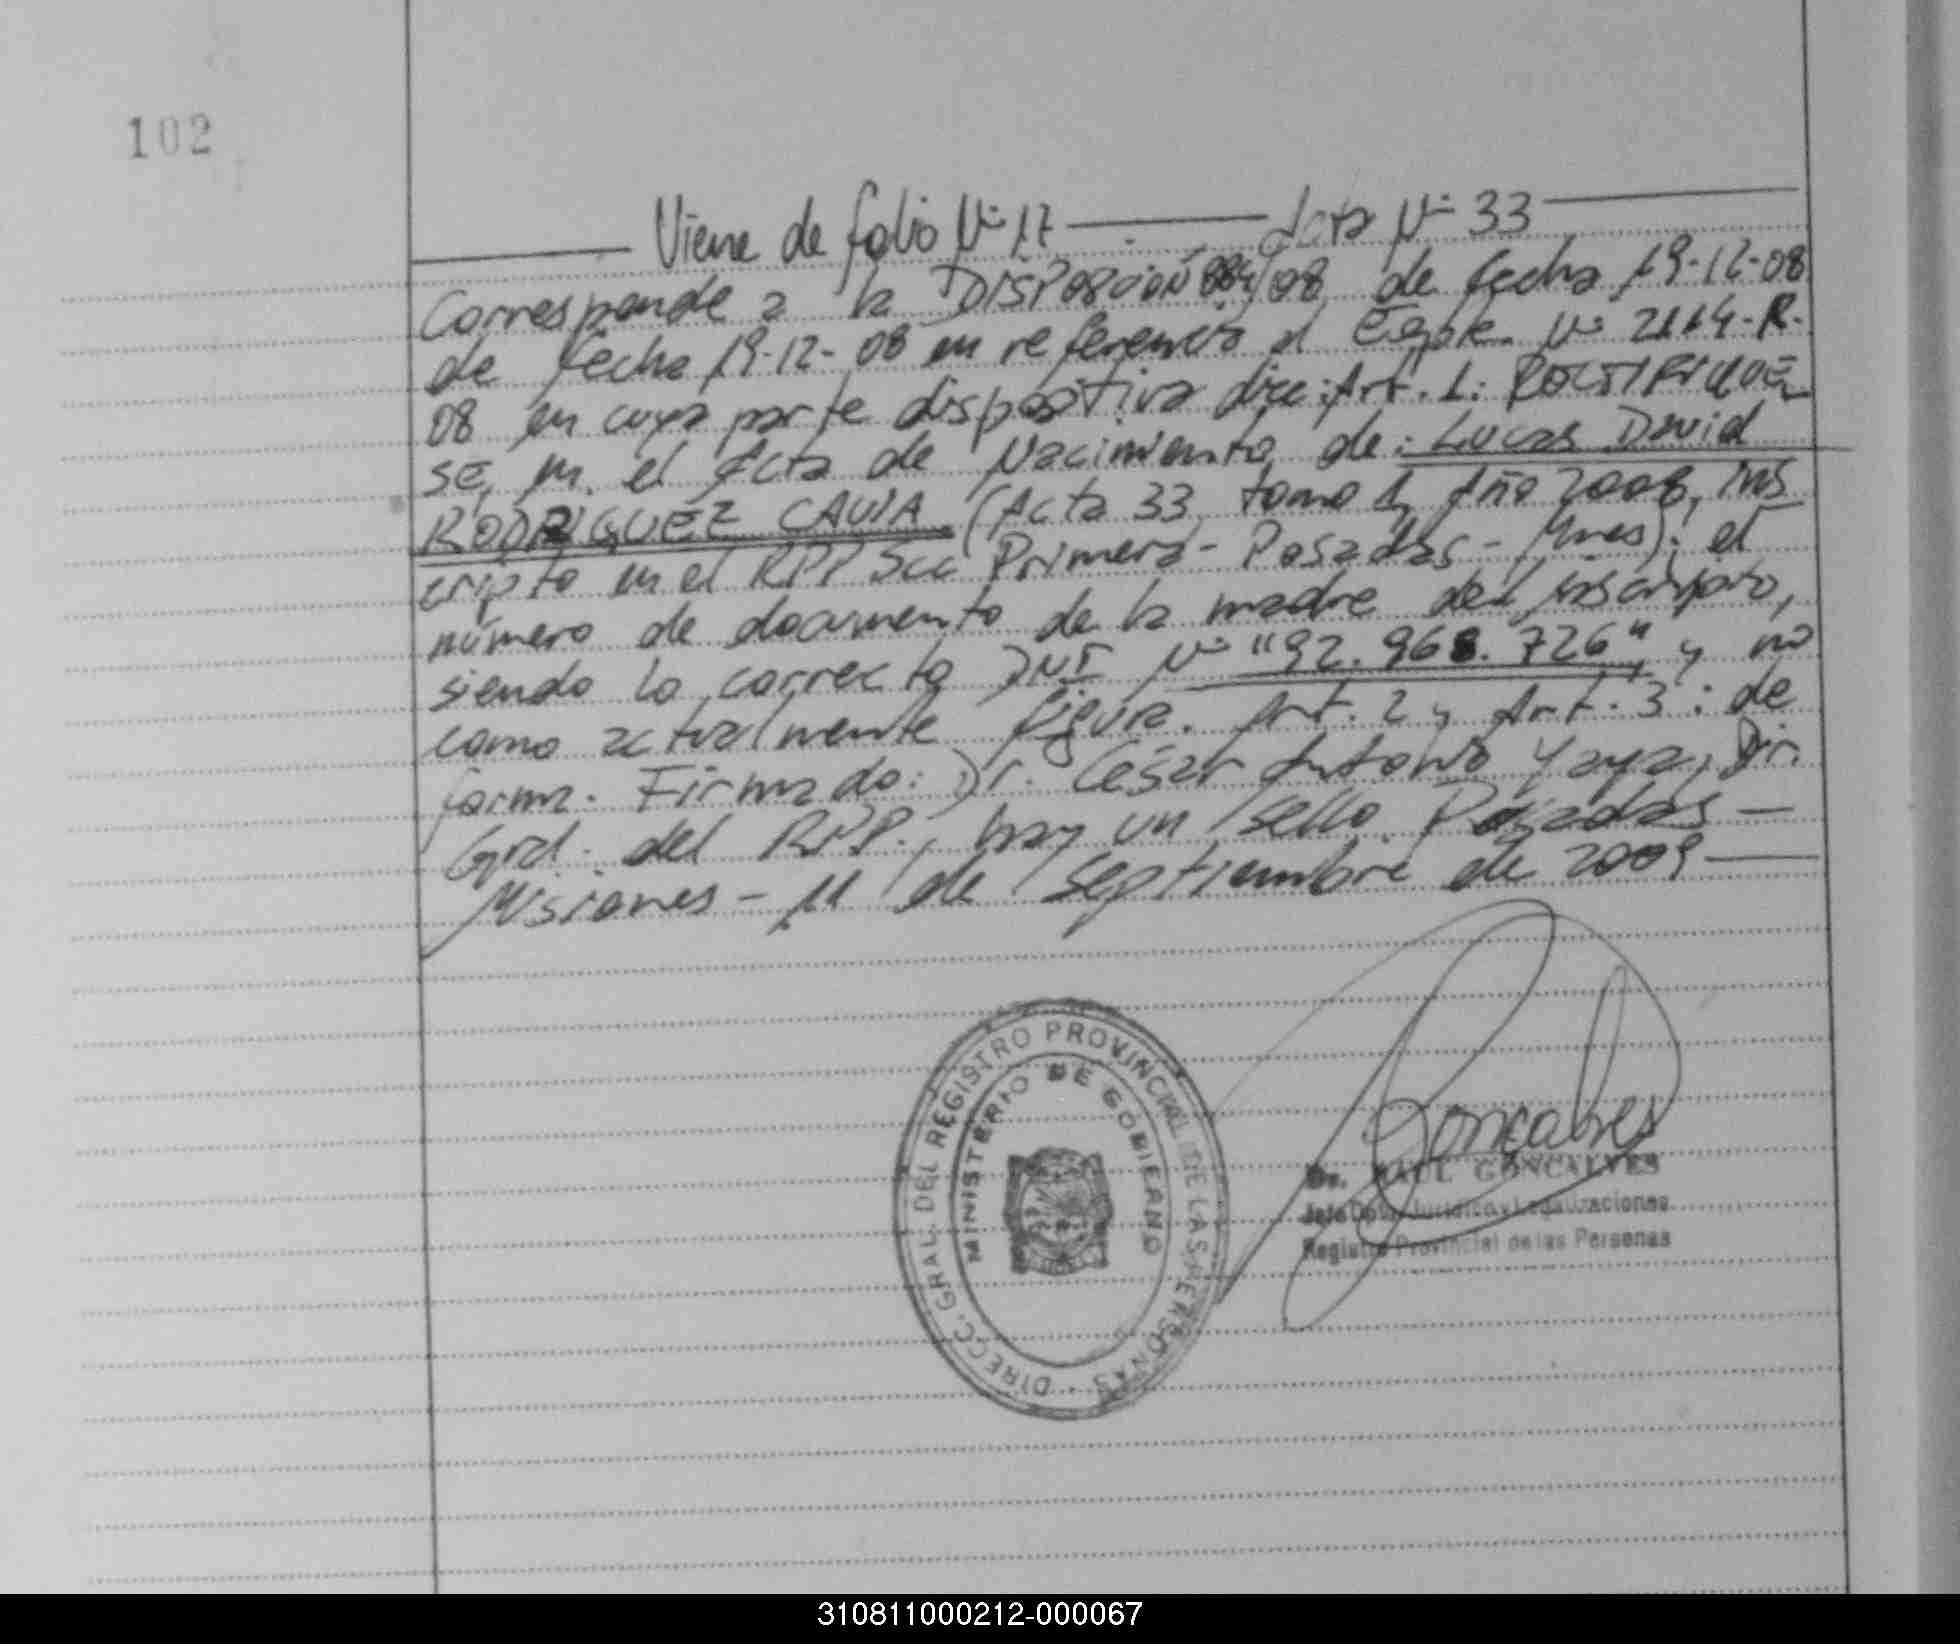 102
Viene de folio Nº 17 Acta Nº 33
Corresponde a la DISPOSICION 884/08 de fecha 19-12-08
de fecha 19-12-08 en referencia al Expte. Nº 2114-R-
08 en cuya parte dispositiva dice: Art. 1: RECTIFIQUE
SE, en el Acta de Nacimiento de: Lucas David
RODRIGUEZ CAVIA (Acta 33, tomo 1, Año 2008, ins
cripto en el RPP Secc Primera - Posadas - Mnes); el
número de documento de la madre del inscripto,
siendo lo correcto DNI Nº "92.968.726", y no
como actualmente figura. Art. 2 y Art. 3: de
forma. Firmado: Dr. César Antonio Yaya, Dir.
Gral. del RPP., hay un sello. Posadas -
Misiones - 11 de Septiembre de 2009
DIRECC. GRAL. DEL REGISTRO PROVINCIAL DE LAS PERSONAS
MINISTERIO DE GOBIERNO
Goncalves
Dr. RAUL GONCALVES
Jefe Dpto. Jurídico y Legalizaciones
Registro Provincial de las Personas
310811000212-000067